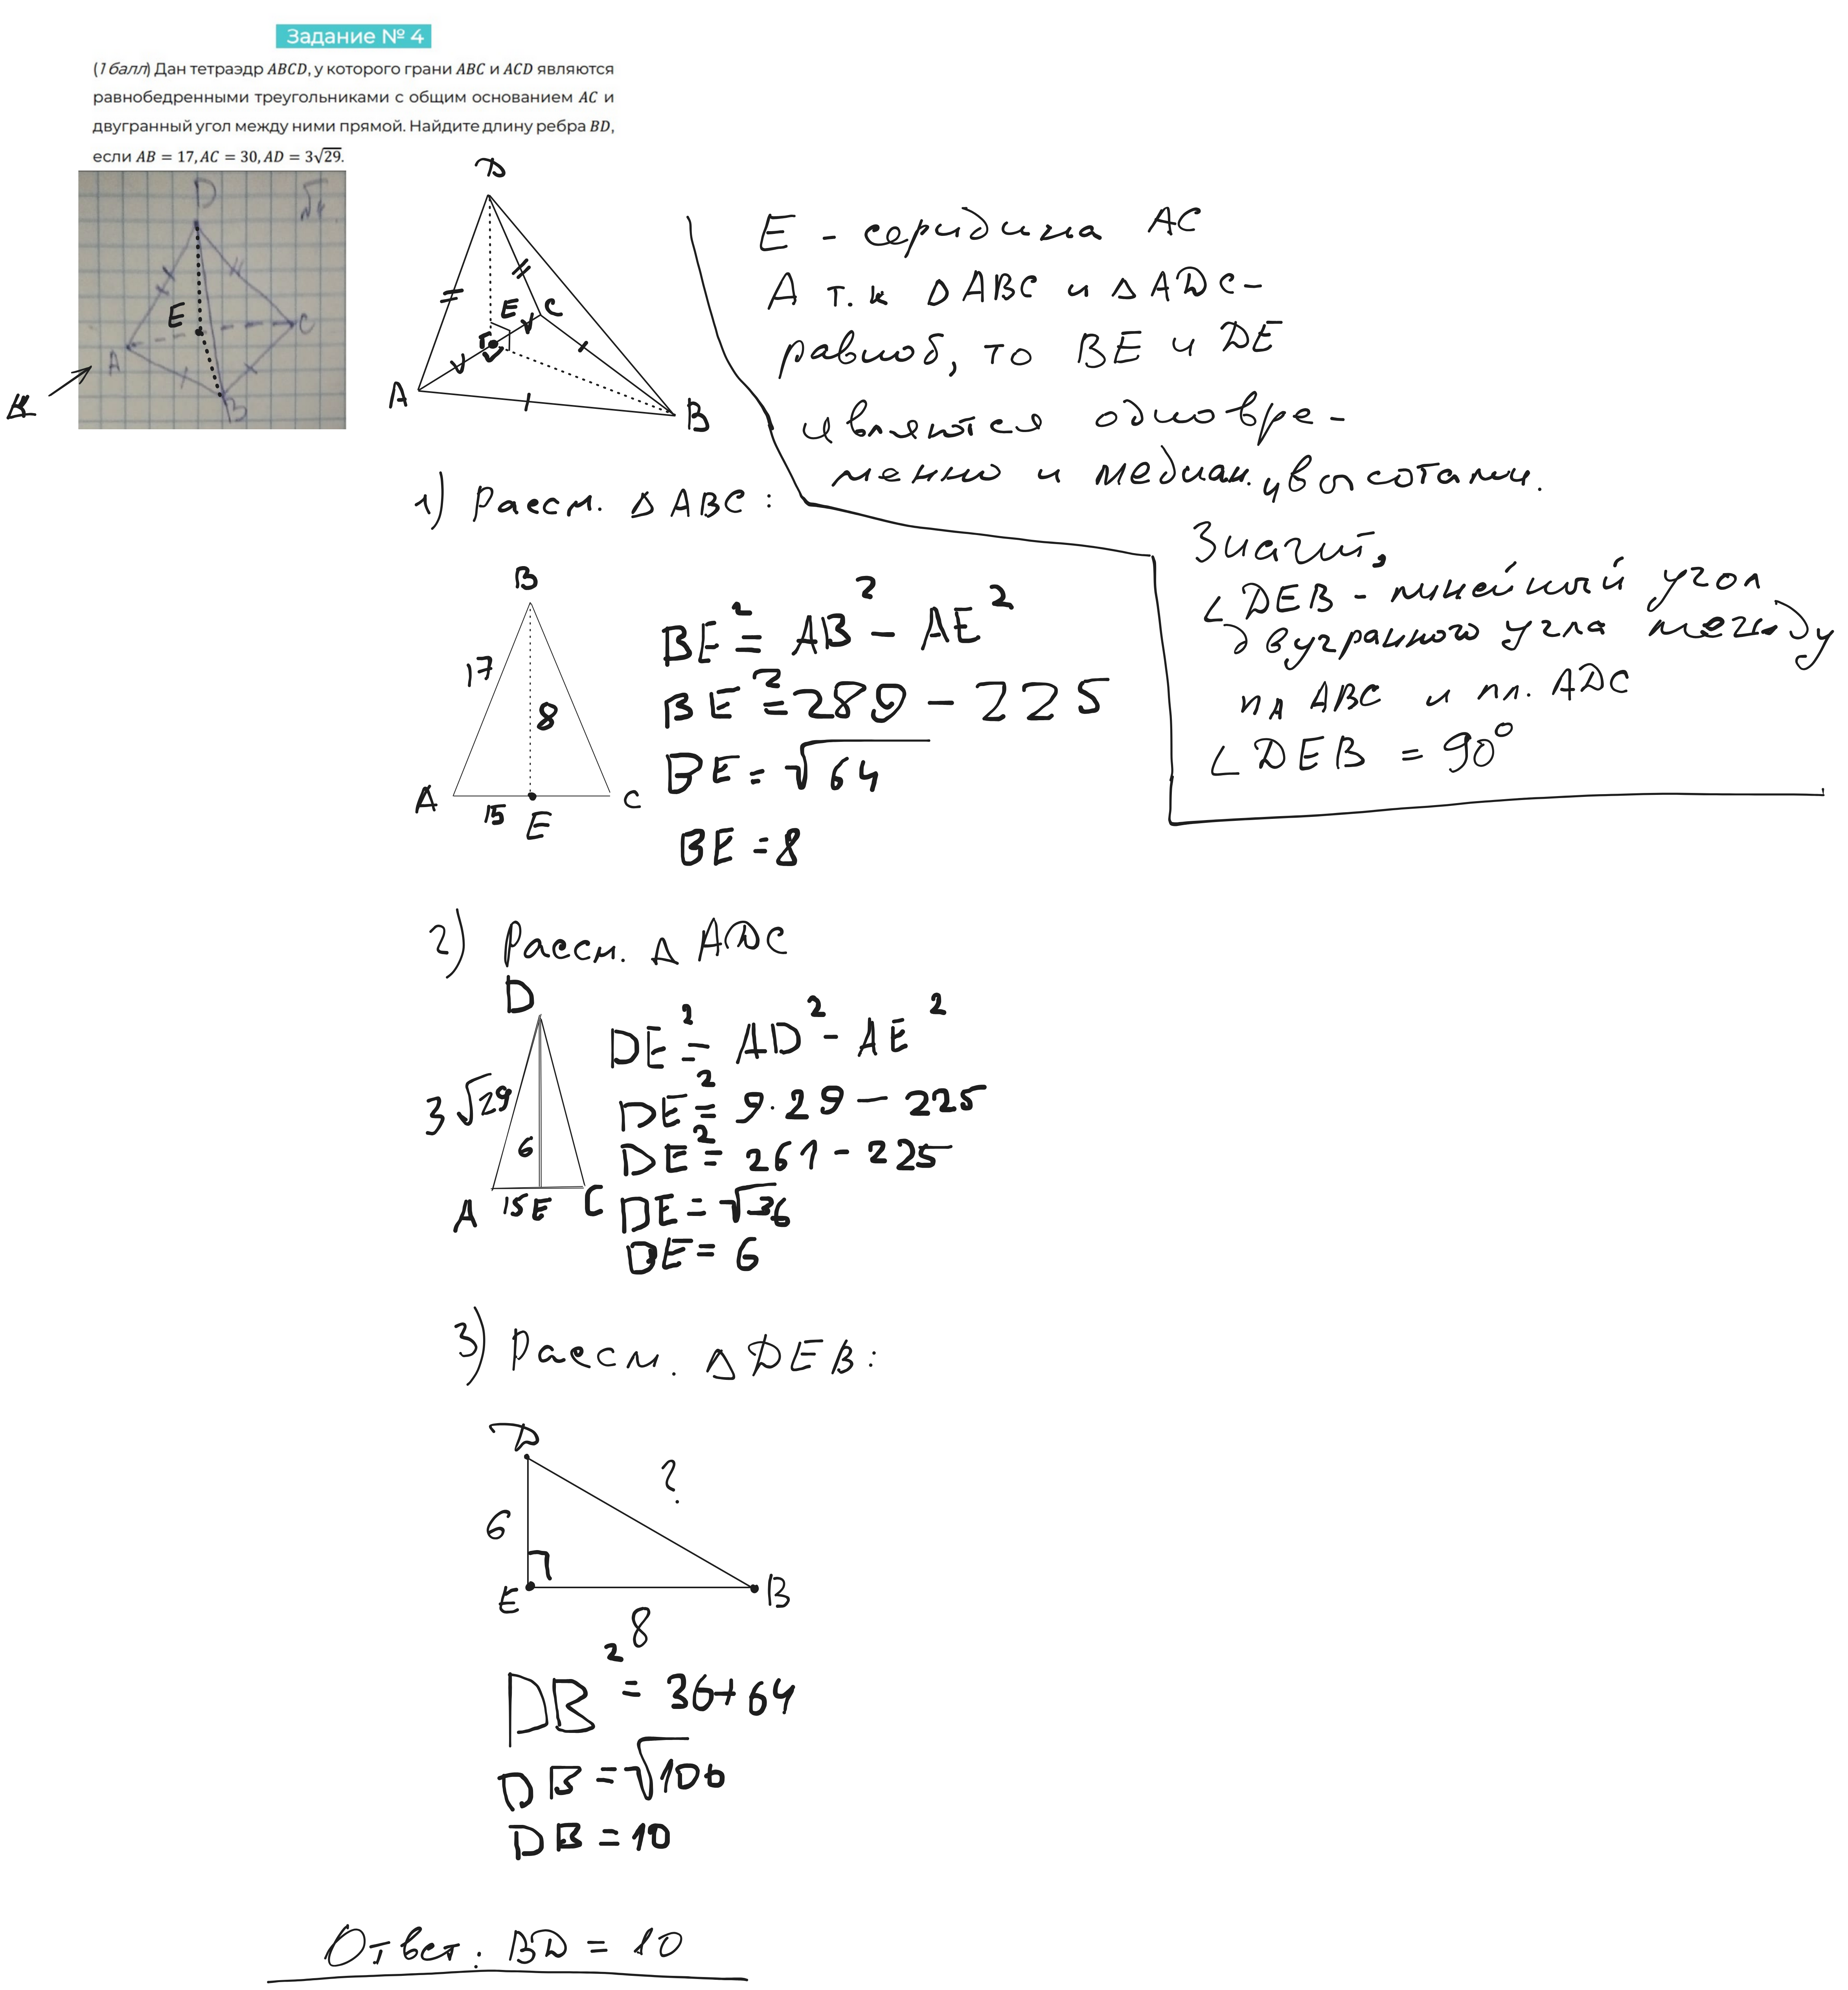 Задание № 4
(1 балл) Дан тетраэдр ABCD, у которого грани ABC и ACD являются
равнобедренными треугольниками с общим основанием AC и
двугранный угол между ними прямой. Найдите длину ребра BD,
если AB = 17, AC = 30, AD = 3√29.
D
√4
E
A
C
B
D
E
C
A
B
E - серидина AC
А т.к △ABC и △ADC-
равноб, то BE и DE
являются одновре-
менно и медиан. и высотами.
Значит,
∠DEB - линейный угол
двугранного угла между
пл ABC и пл. ADC
∠DEB = 90°
1) Рассм. △ABC:
B
17
8
A
15
E
C
BE² = AB² - AE²
BE² = 289 - 225
BE = √64
BE = 8
2) Рассм. △ADC
D
3√29
6
A
15
E
C
DE² = AD² - AE²
DE² = 9·29 - 225
DE² = 261 - 225
DE = √36
DE = 6
3) Рассм. △DEB:
D
?
6
E
B
8
DB² = 36+64
DB = √100
DB = 10
Ответ: BD = 10